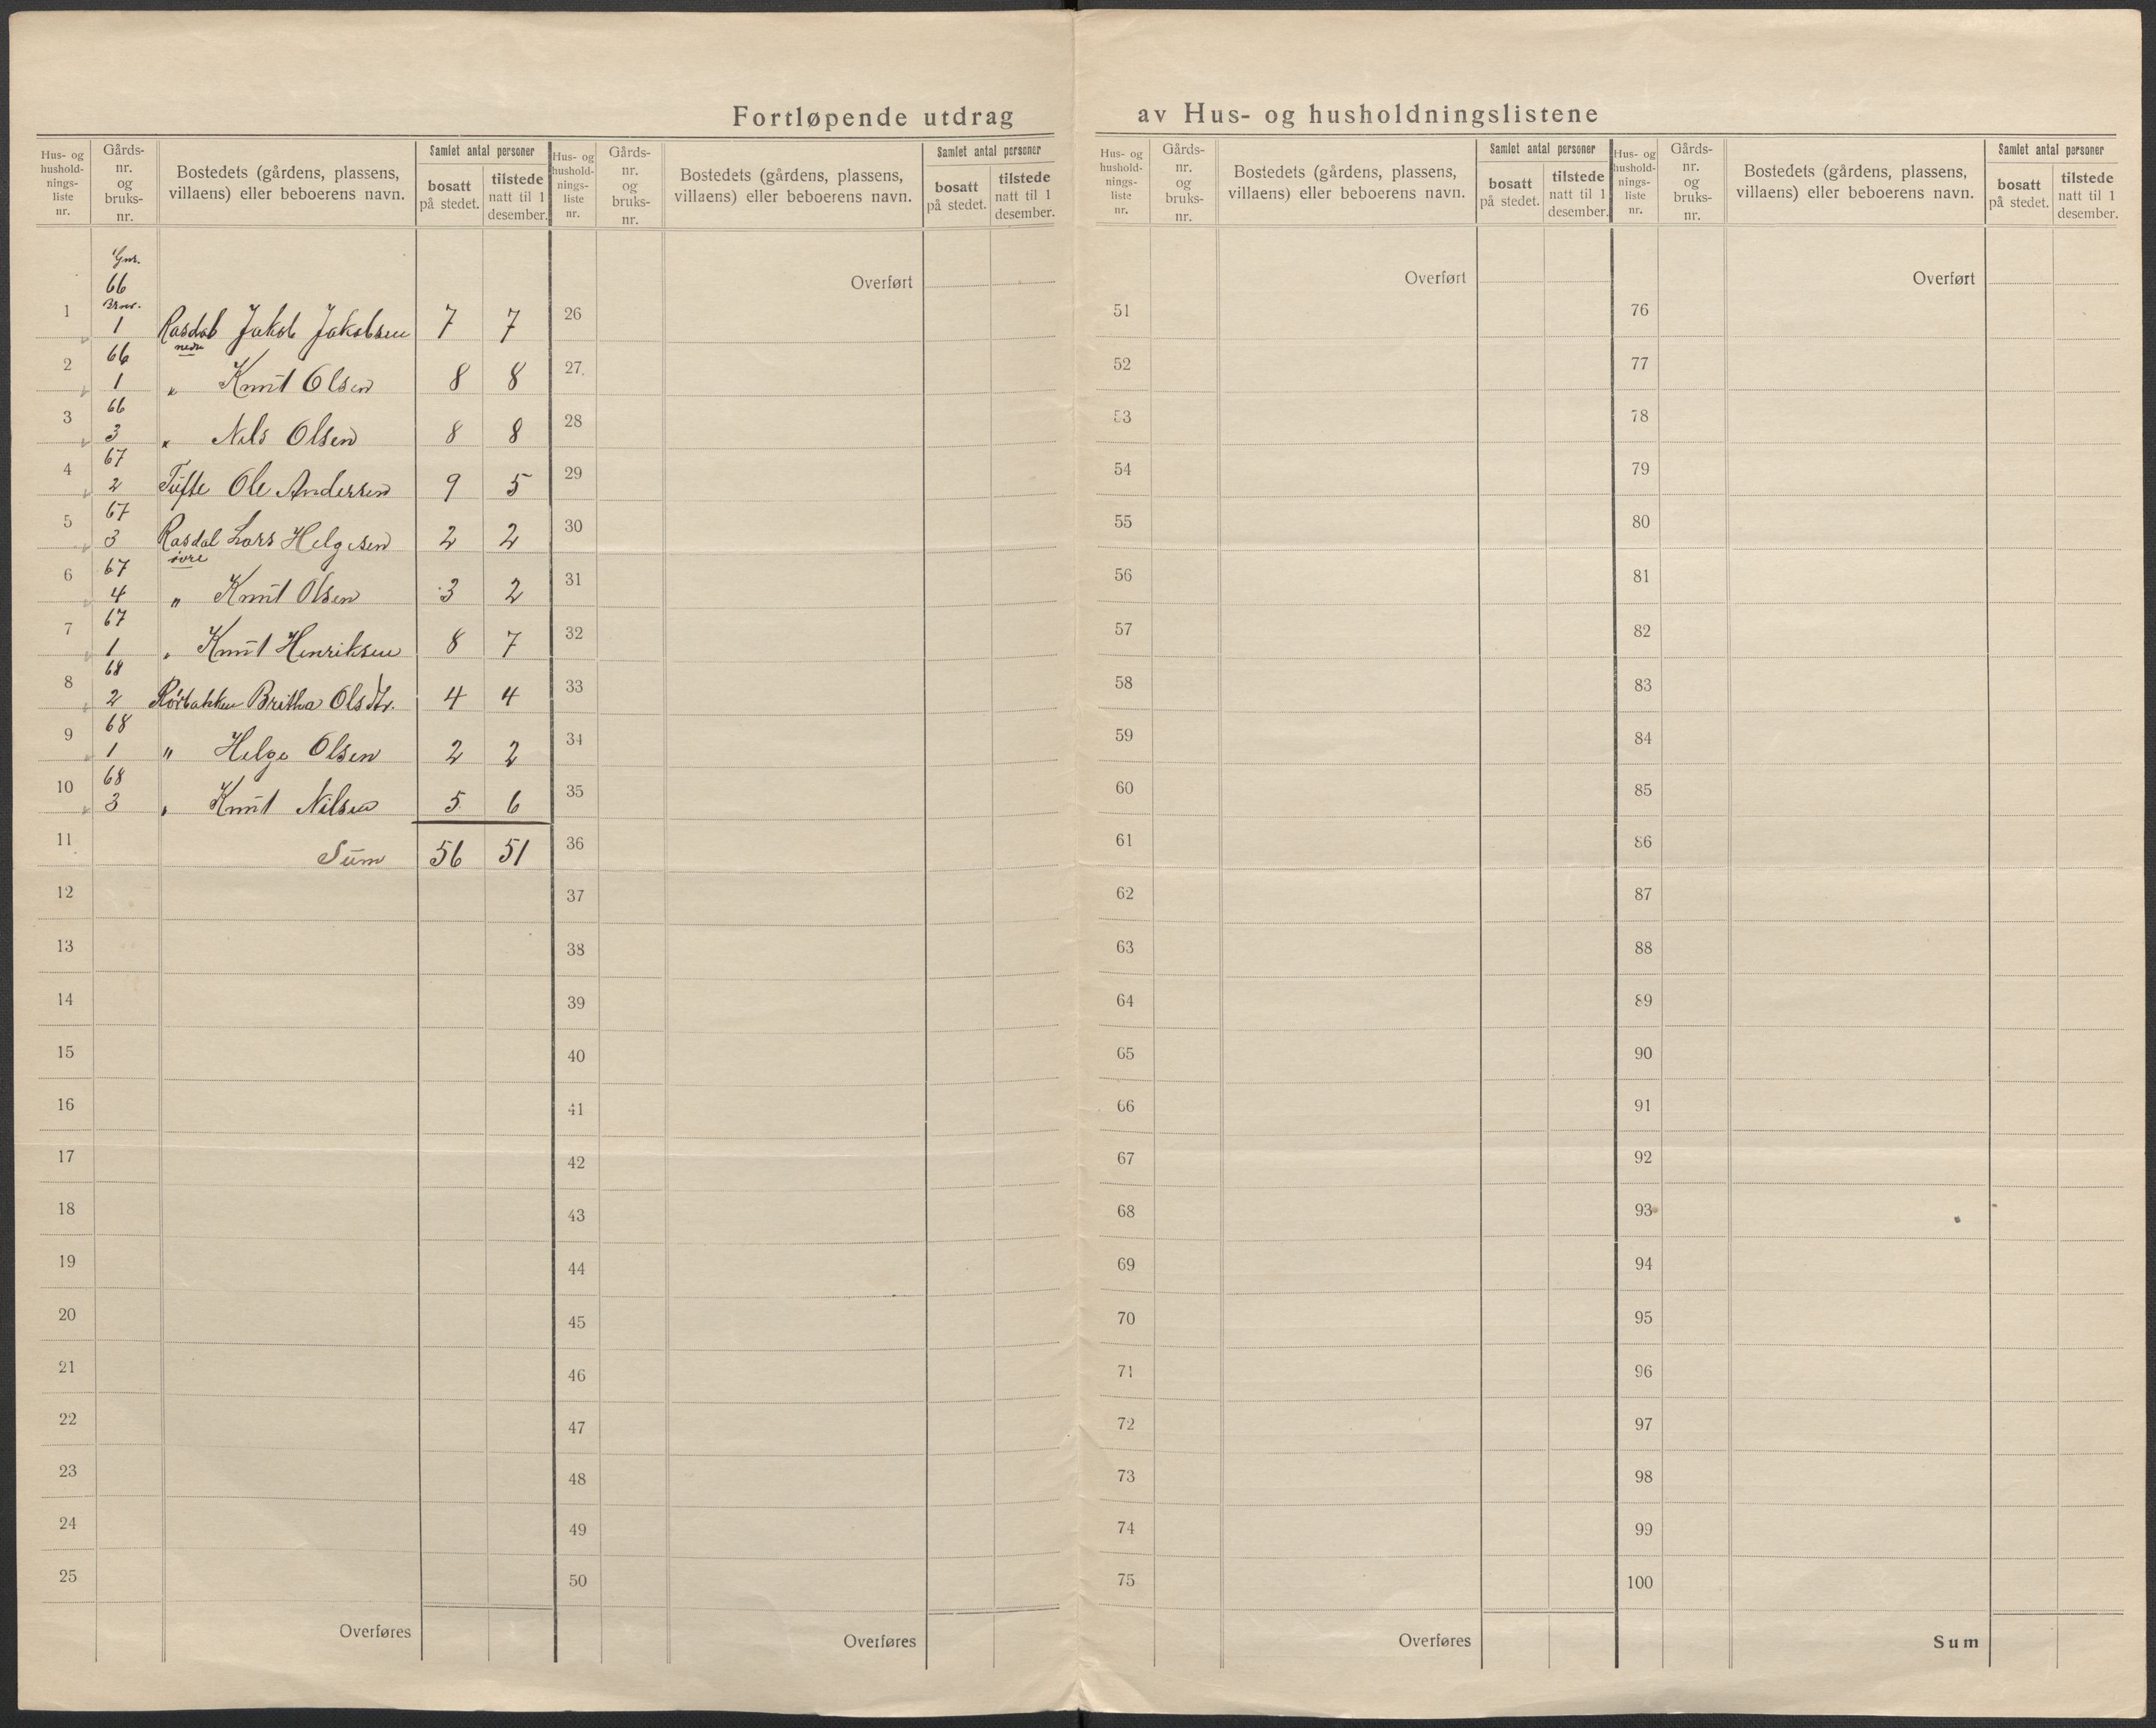 Fortløpende utdrag av Hus- og husholdningslistene
Hus- og hushold-nings-liste nr. | Gårds-nr. og bruks-nr. | Bostedets (gårdens, plassens, villaens) eller beboerens navn. | Samlet antal personer | bosatt på stedet. | tilstede natt til 1 desember.
Hus- og hushold-nings-liste nr. | Gårds-nr. og bruks-nr. | Bostedets (gårdens, plassens, villaens) eller beboerens navn. | Samlet antal personer | bosatt på stedet. | tilstede natt til 1 desember.
Hus- og hushold-nings-liste nr. | Gårds-nr. og bruks-nr. | Bostedets (gårdens, plassens, villaens) eller beboerens navn. | Samlet antal personer | bosatt på stedet. | tilstede natt til 1 desember.
Hus- og hushold-nings-liste nr. | Gårds-nr. og bruks-nr. | Bostedets (gårdens, plassens, villaens) eller beboerens navn. | Samlet antal personer | bosatt på stedet. | tilstede natt til 1 desember.
1 Gnr. 66 Brnr. 1 Rasdal nedre Jakob Jakobsen 7 7
2 66 1 " Knut Olsen 8 8
3 66 3 " Nils Olsen 8 8
4 67 2 Tufte Ole Andersen 9 5
5 67 3 Rasdal øvre Lars Helgesen 2 2
6 67 4 " Knut Olsen 3 2
7 67 1 " Knut Henriksen 8 7
8 68 2 Rörbakken Britha Olsdtr. 4 4
9 68 1 " Helge Olsen 2 2
10 68 3 " Knut Nilsen 5 6
11 Sum 56 51
12
13
14
15
16
17
18
19
20
21
22
23
24
25
Overføres
Overført
26
27
28
29
30
31
32
33
34
35
36
37
38
39
40
41
42
43
44
45
46
47
48
49
50
Overføres
Overført
51
52
53
54
55
56
57
58
59
60
61
62
63
64
65
66
67
68
69
70
71
72
73
74
75
Overføres
Overført
76
77
78
79
80
81
82
83
84
85
86
87
88
89
90
91
92
93
94
95
96
97
98
99
100
Sum